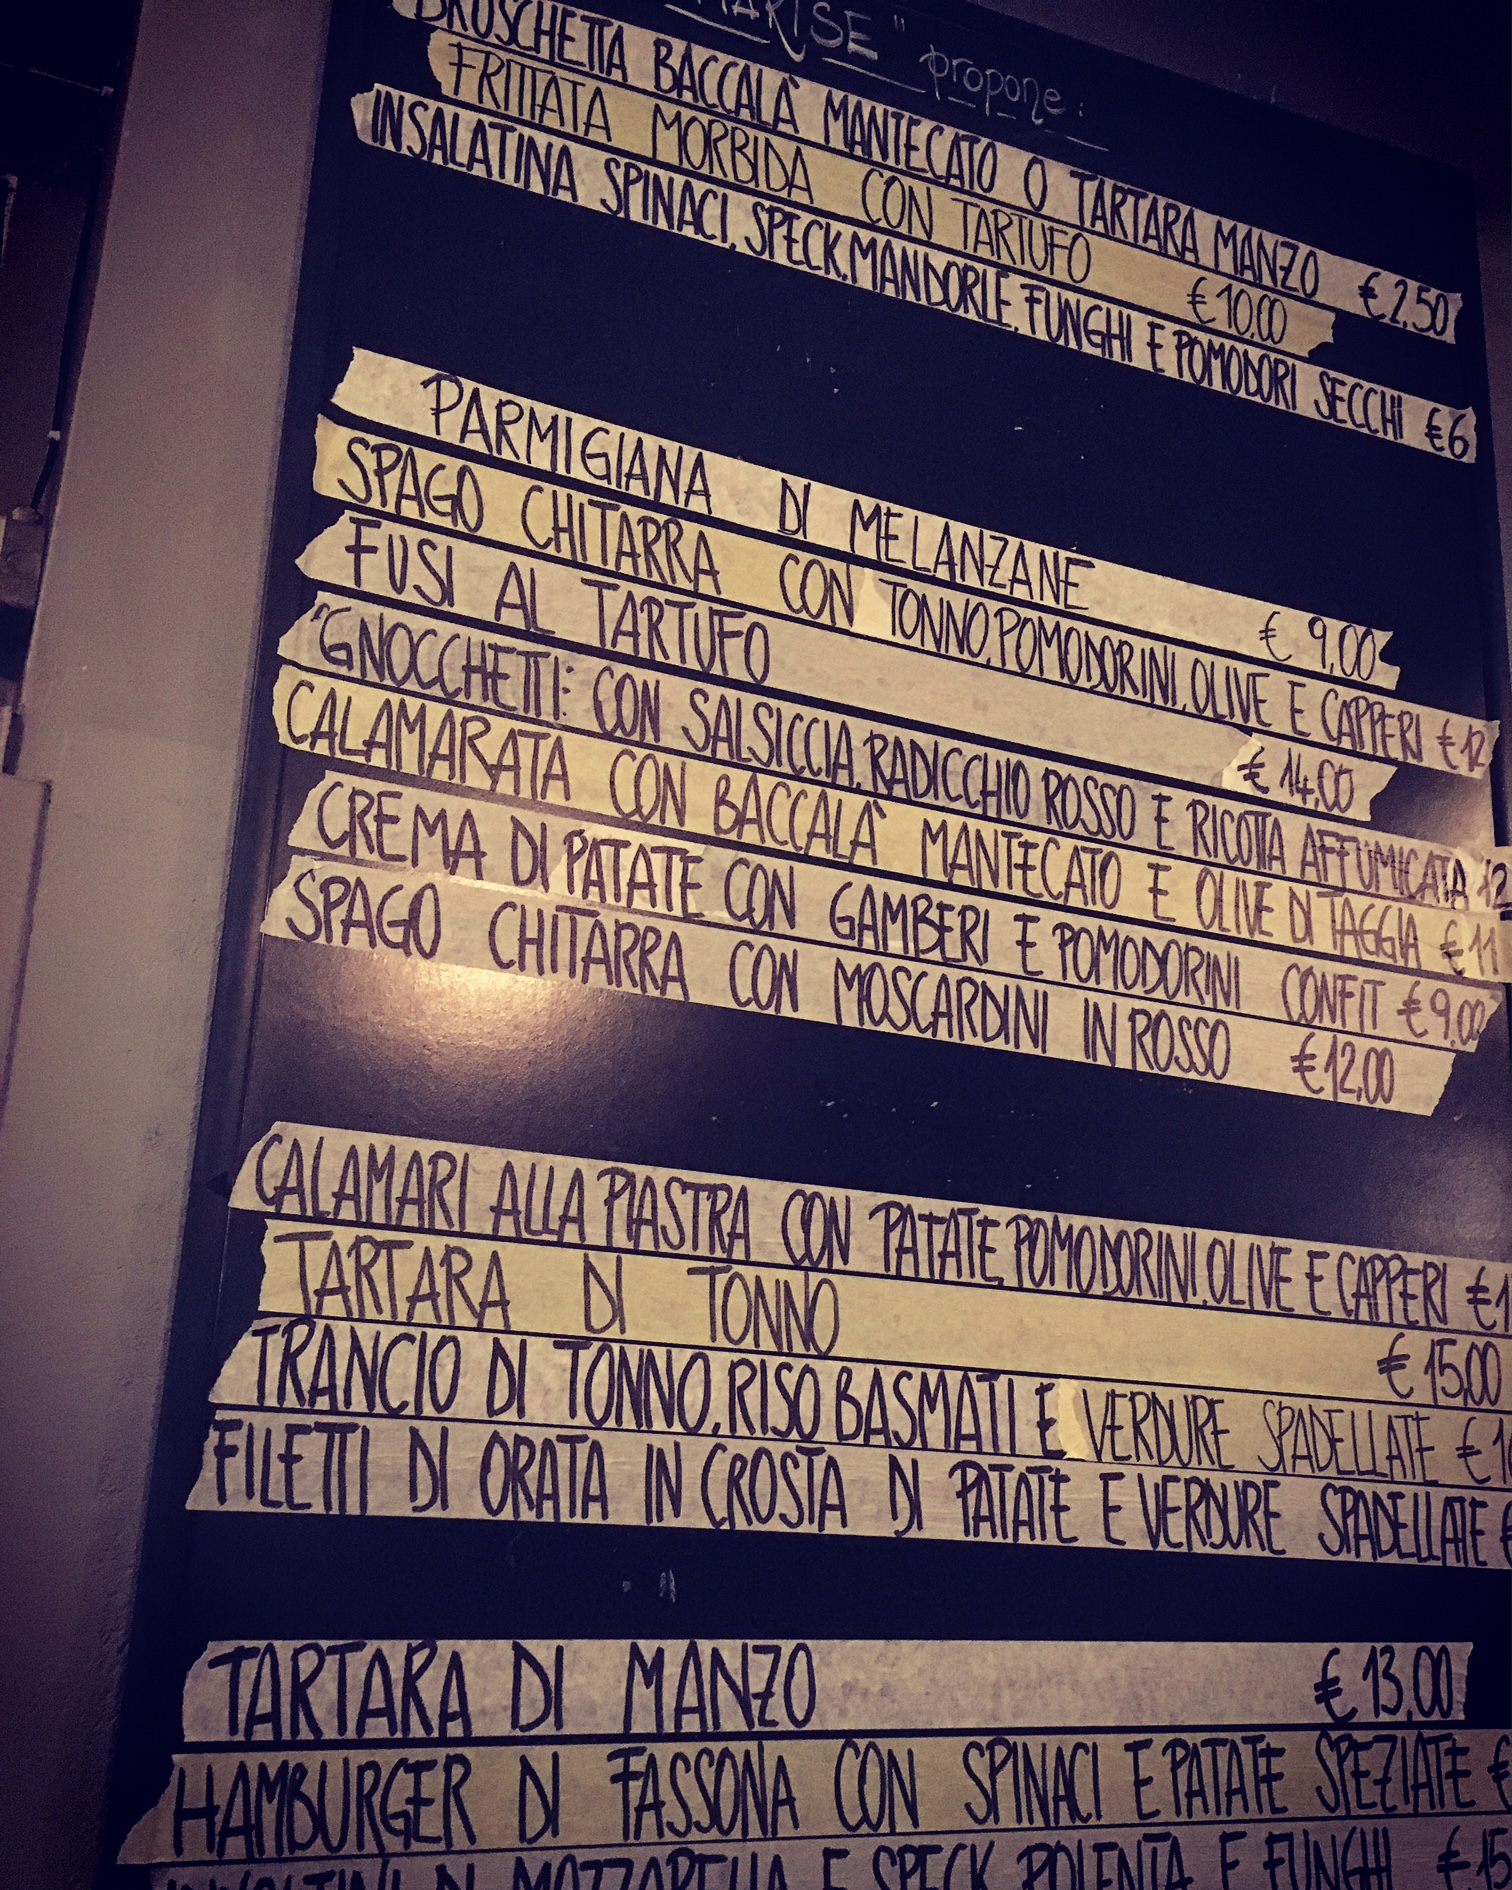 "MARISE" propone:
BRUSCHETTA BACCALÀ MANTECATO O TARTARA MANZO €2,50
FRITTATA MORBIDA CON TARTUFO €10,00
INSALATINA SPINACI, SPECK, MANDORLE, FUNGHI E POMODORI SECCHI €6
PARMIGIANA DI MELANZANE € 9,00
SPAGO CHITARRA CON TONNO, POMODORINI, OLIVE E CAPPERI €12
FUSI AL TARTUFO € 14,00
"GNOCCHETTI: CON SALSICCIA, RADICCHIO ROSSO E RICOTTA AFFUMICATA 12
CALAMARATA CON BACCALÀ MANTECATO E OLIVE DI TAGGIA €11
CREMA DI PATATE CON GAMBERI E POMODORINI CONFIT €9,00
SPAGO CHITARRA CON MOSCARDINI IN ROSSO €12,00
CALAMARI ALLA PIASTRA CON PATATE, POMODORINI, OLIVE E CAPPERI €1
TARTARA DI TONNO € 15,00
TRANCIO DI TONNO, RISO BASMATI E VERDURE SPADELLATE €1
FILETTI DI ORATA IN CROSTA DI PATATE E VERDURE SPADELLATE €
TARTARA DI MANZO € 13,00
HAMBURGER DI FASSONA CON SPINACI E PATATE SPEZIATE €
INVOLTINI DI MOZZARELLA E SPECK, POLENTA E FUNGHI €15